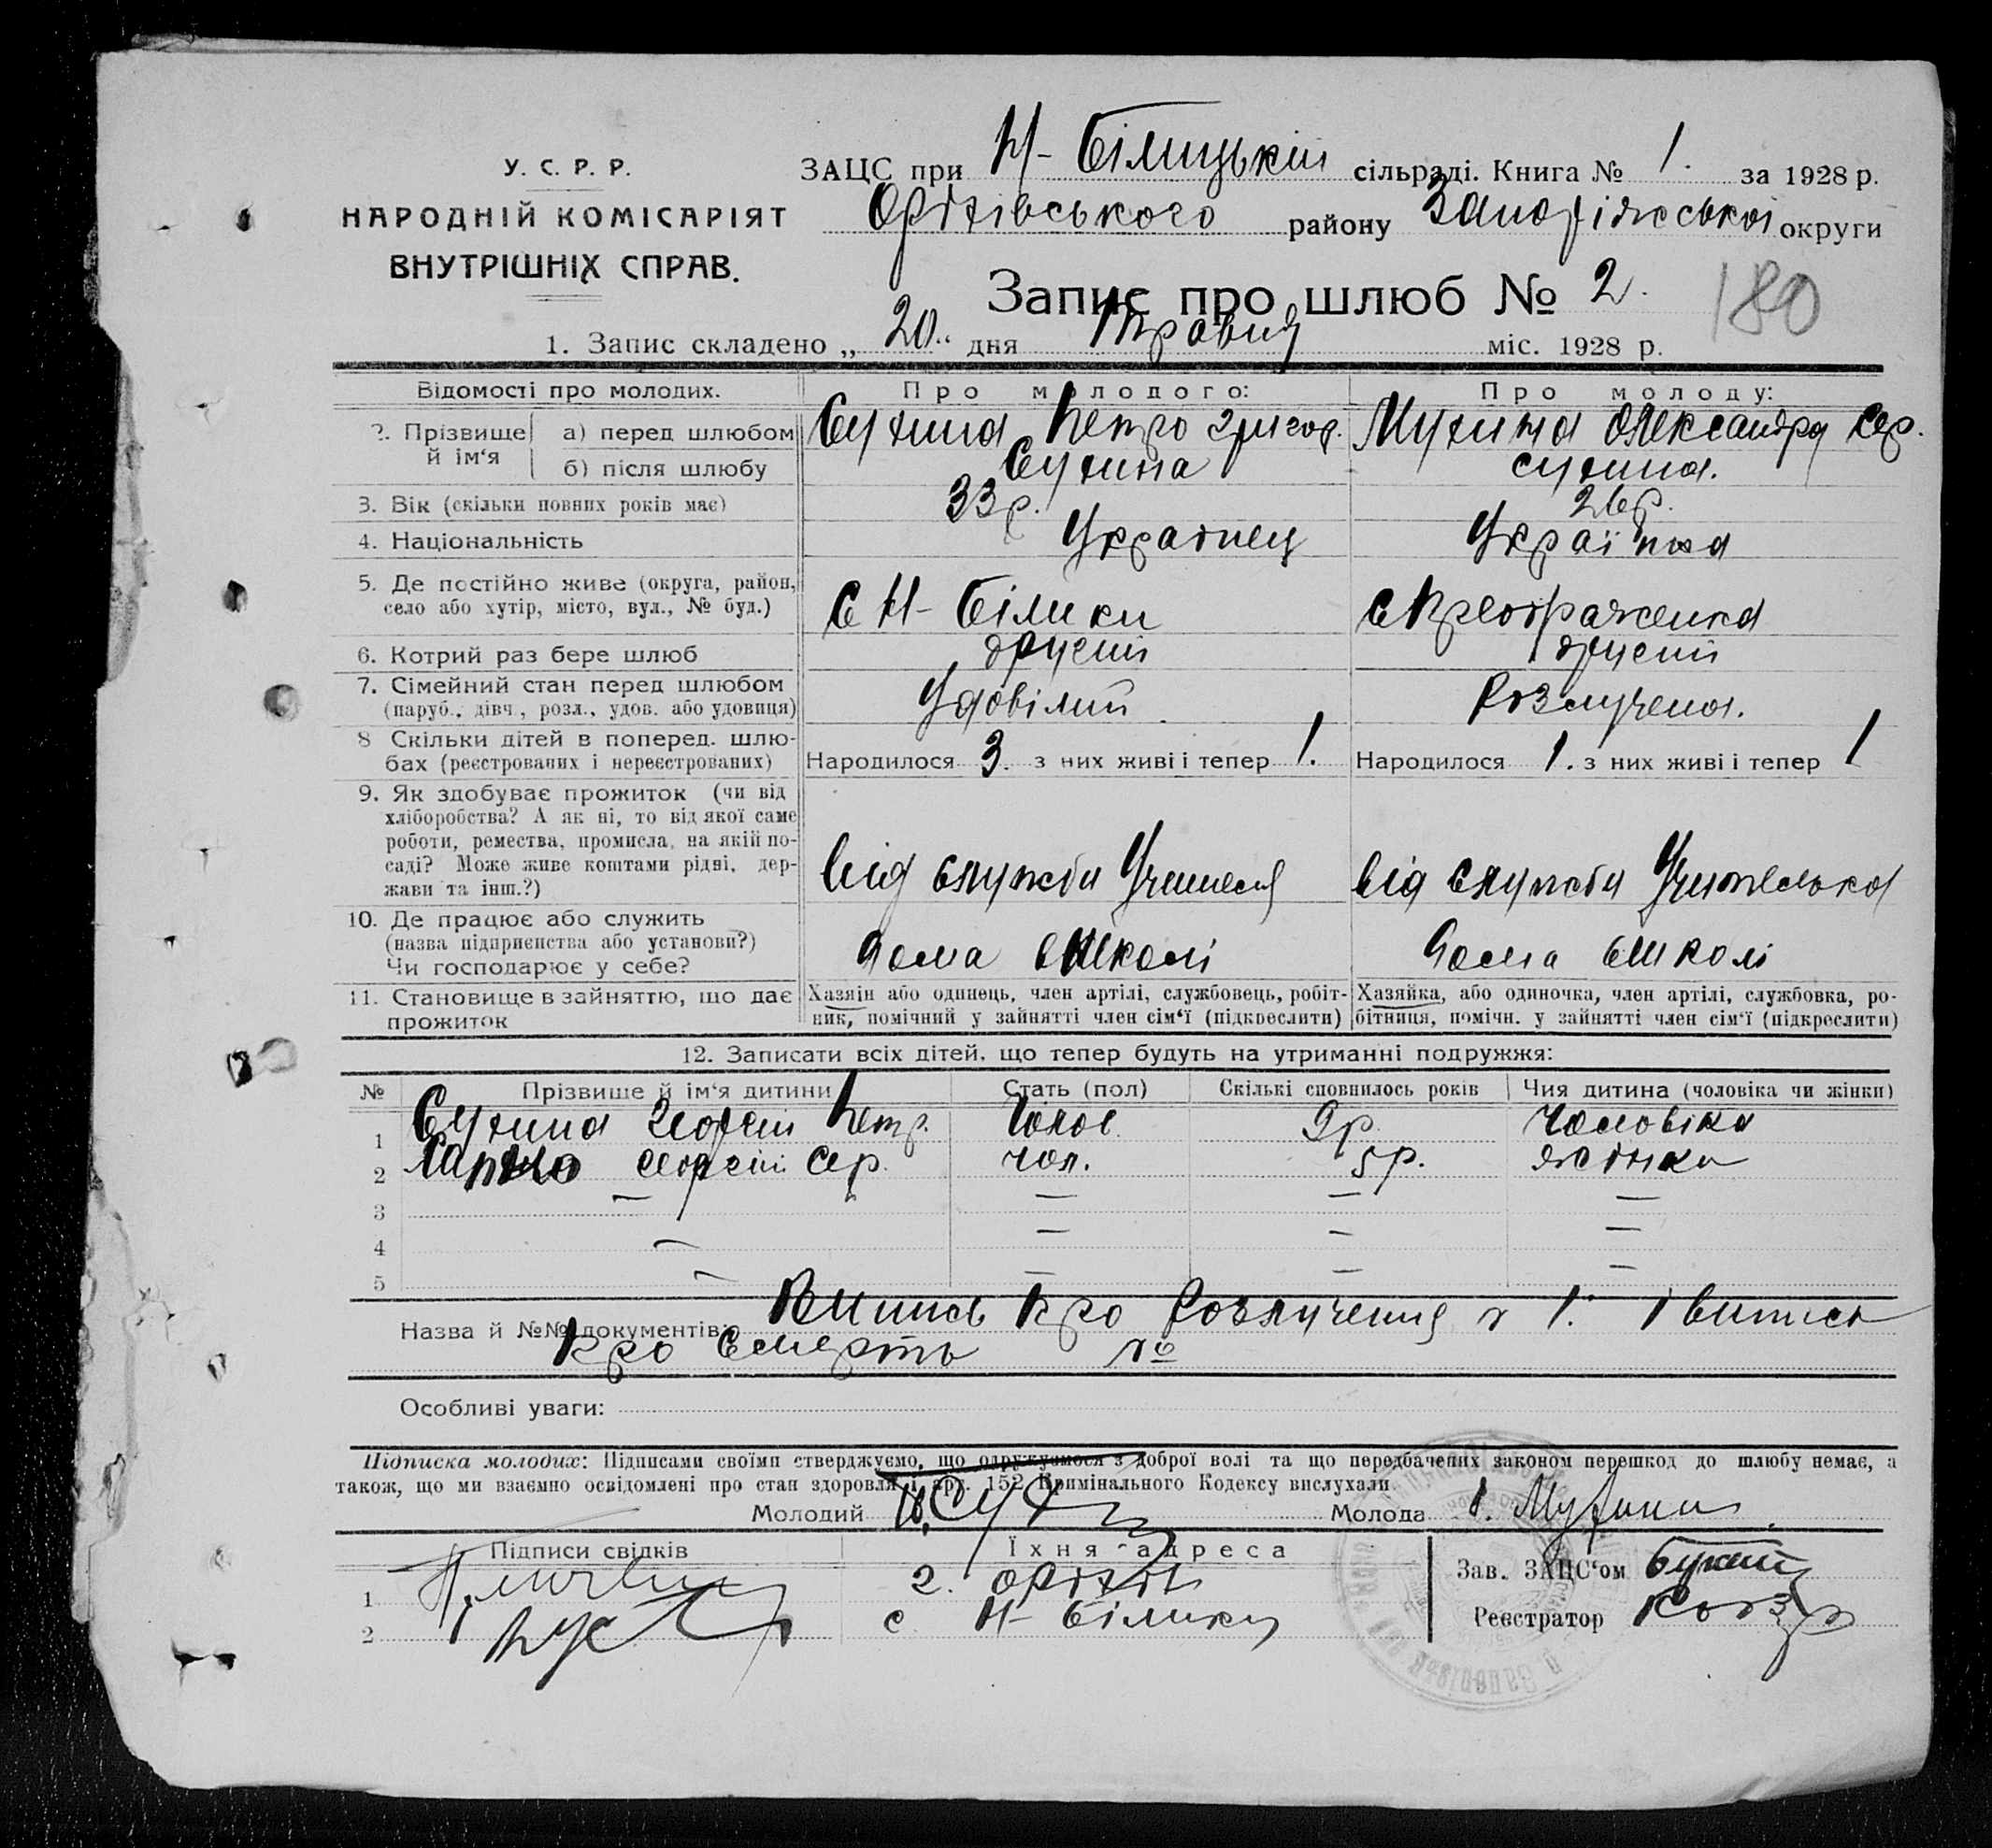 У. С. Р. Р.
НАРОДНІЙ КОМІСАРІЯТ
ВНУТРІШНІХ СПРАВ.
ЗАЦС при Н-Білицькій сільраді. Книга № 1. за 1928 р.
Оріхівського району Запоріжської округи
Запис про шлюб № 2.
180
1. Запис складено „ 20 “ дня Травня міс. 1928 р.
Відомості про молодих. Про молодого: Про молоду:
2. Прізвище й ім‘я а) перед шлюбом Сухина Петро Григор. Мухина Олександра Сер.
б) після шлюбу Сухина Сухина.
3. Вік (скільки повних років має) 33 р. 26 р.
4. Національність Українец Українка
5. Де постійно живе (округа, район, село або хутір, місто, вул., № буд.) с Н-Білики с Преображенка
6. Котрий раз бере шлюб другий другий
7. Сімейний стан перед шлюбом (паруб., дівч., розл., удов. або удовиця) Удовілий Розлучена.
8 Скільки дітей в поперед. шлюбах (реєстрованих і нереєстрованих) Народилося 3. з них живі і тепер 1. Народилося 1. з них живі і тепер 1
9. Як здобуває прожиток (чи від
хліборобства? А як ні, то від якої саме
роботи, ремества, промисла, на якій по-
саді? Може живе коштами рідні, дер-
жави та інш.?)
Від служби Учителя Від служби Учителька
10. Де працює або служить
(назва підприєнства або установи?)
Чи господарює у себе?
школі школі
11. Становище в зайняттю, що дає прожиток
Хазяін або одинець, член артілі, службовець, робіт-
ник, помічний у зайнятті член сім‘ї (підкреслити)
Хазяйка, або одиночка, член артілі, службовка, ро-
бітниця, помічн. у зайнятті член сім‘ї (підкреслити)
12. Записати всіх дітей, що тепер будуть на утриманні подружжя:
№ Прізвише й ім‘я дитини Стать (пол) Скількі сповнилось років Чия дитина (чоловіка чи жінки)
1 Сухина Георгій Петр. Чолов. 9 р. Чоловіка
2 Георгій Сер. чол. 5 р. жінки
3 — — — —
4 — — — —
5 — — — —
Назва й №№ документів: Випись про Розлучення № 1. і випись
про Смерть №
Особливі уваги:
Підписка молодих: Підписами своїми стверджуємо, що одружуємося з доброї волі та що передбачених законом перешкод до шлюбу немає, а
також, що ми взаємно освідомлені про стан здоровля і арт. 152 Кримінального Кодексу вислухали
Молодий Молода Мухина
Підписи свідків Їхня адреса
1 г. Оріхів
2 с Н-Білики
Зав. ЗАЦС‘ом
Реєстратор